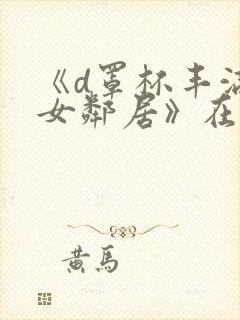 《d罩杯丰满
女鄰居》在
黄馬